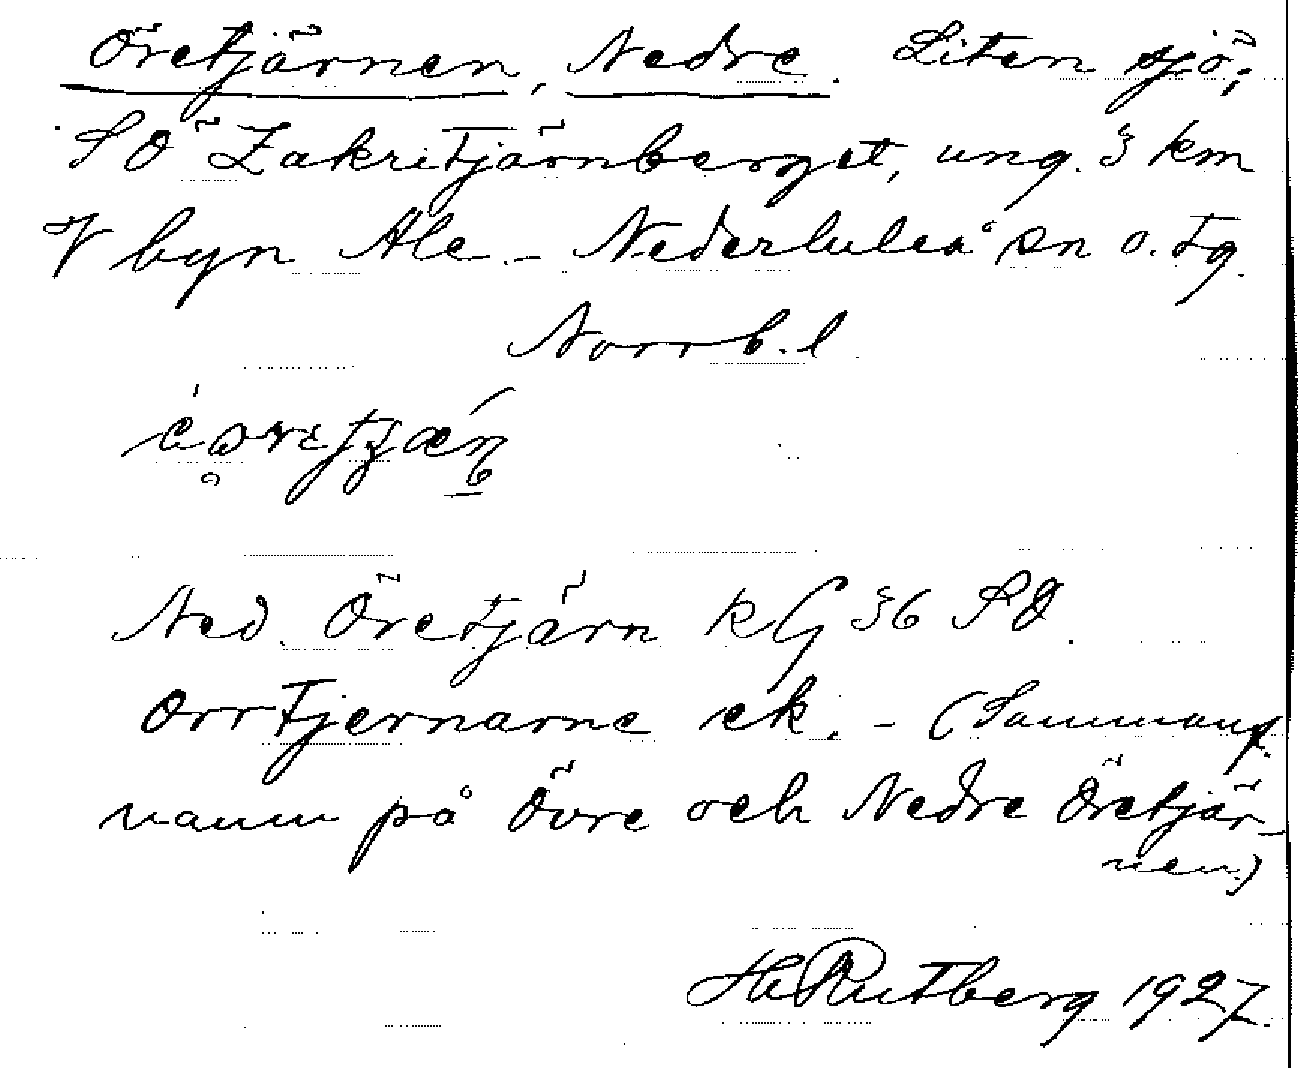 Öretjärnen, Nedre. Liten sjö,
SO Zakritjärnberget, ung. 3 km
V byn Ale. – Nederluleå sn o. tg.
Norrb. l
Ned. Öretjärn kG 36 SO.
Orrtjernarne ek. – (Sammanf.
namn på Övre och Nedre Öretjär-
nen.)
HRutberg 1927.